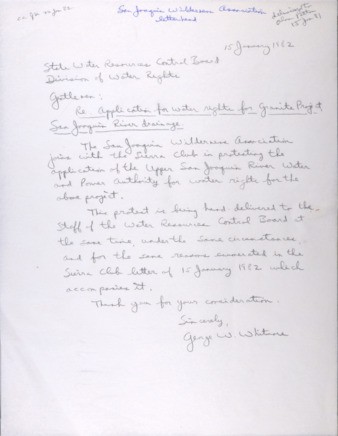 San Joaquin Wilderness Association
letterhead
15 January 1982
State Water Resources Control Board
Division of Water Rights
Gentlemen:
Re Application for water rights for Granite Project,
San Joaquin River drainage.
The San Joaquin Wilderness Association
joins with the Sierra Club in protesting the
application of the Upper San Joaquin River Water
and Power Authority for water rights for the
above project.
This protest is being hand delivered to the
Staff of the Water Resources Control Board at
the same time, under the same circumstances,
and for the same reasons enumerated in the
Sierra Club letter of 15 January 1982 which
accompanies it.
Thank you for your consideration.
Sincerely,
George W. Whitmore